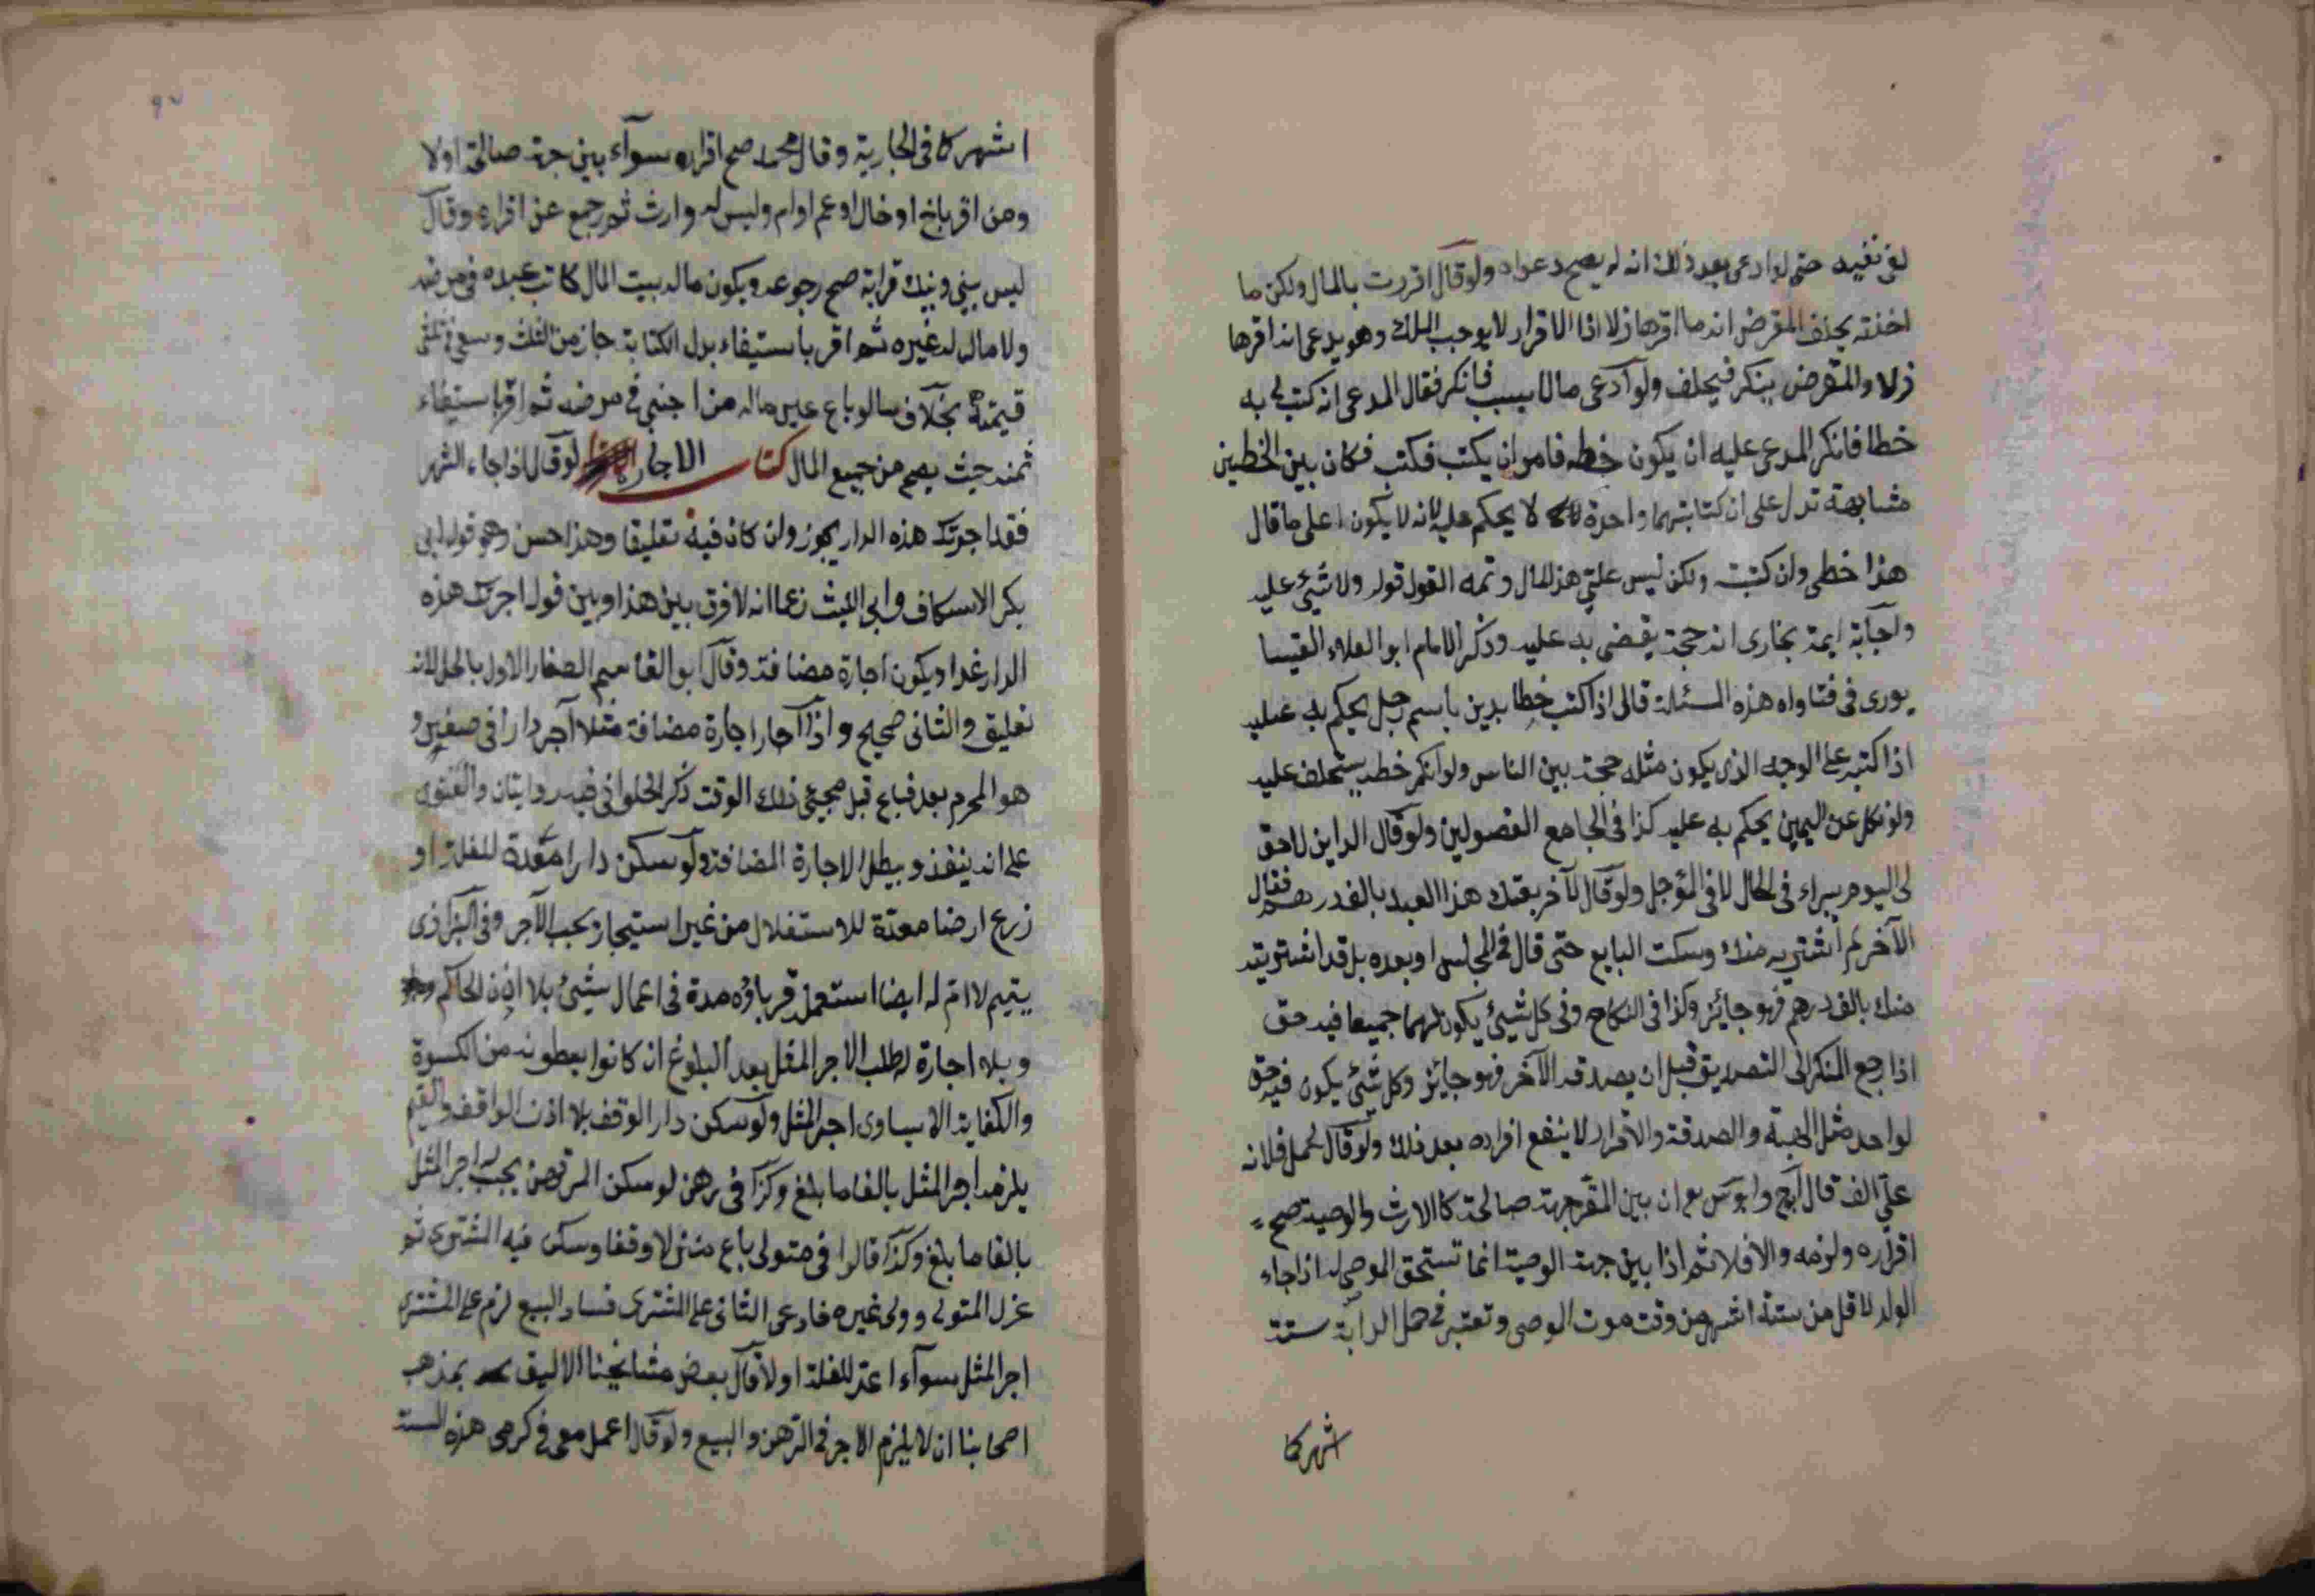 لغو نفيه حتى لو ادعى بعد ذلك انه له يصح دعواه ولو قال اقررت بالمال ولكن ما
اخذته يحلف المقرض انه ما اقرها زلا اذا الاقرار لا يوجب الملك وهو يدعى انه اقرها
زلا والمقرض ينكر فيحلف ولو ادعى مالا بسبب فانكر فقال المدعى انه كتب لى به
خطا فانكر المدعى عليه ان يكون خطه فامر ان يكتب فكتب فكان بين الخطين
مشابهة تدل على ان كتابتهما واحدة لا يحكم عليه لانه لا يكون اعلى ما قال
هذا خطى وان كتبت ولكن ليس على هذا المال وثمه القول قوله ولا شيئ عليه
واجابة ايمة بخارى انه حجة يقضى به عليه وذكر الامام ابو العلاء القيسا
بورى فى فتاواه هذه المسئلة قال اذا كتب خطا بدين باسم رجل يحكم به عليه
اذا كتبه على الوجه الذى يكون مثله حجة بين الناس ولو انكر خطه يستحلف عليه
ولو نكل عن اليمين يحكم به عليه كذا فى الجامع الفصولين ولو قال الداين لا حق
لى اليوم يبراء فى الحال لا فى المؤجل ولو قال لآخر بعتك هذا العبد بالف درهم فقال
الآخر لم اشتريه منك وسكت البايع حتى قال فى المجلس او بعده بل قد اشتريته
منك بالف درهم فهو جايز وكذا فى النكاح وفى كل شيئ يكون لهما جميعا فيه حق
اذا رجع المنكر الى التصديق قبل ان يصدقه الآخر فهو جايز وكل شيئ يكون فيه حق
لواحد مثل الهبة والصدقة والاقرار لا ينفع اقراره بعد ذلك ولو قال لحمل فلانه
على الف قال وابو ان بين المقر جهة صالحة كالارث والوصية صح
اقراره ولزمه والا فلا ثم اذا بين جهة الوصية انما تستحق الموصى له اذا جاء
الولد لاقل من ستة اشهر من وقت موت الموصى وتعتبر فى حمل الدابة ستة
اشهر كما
اشهر كما فى الجارية وقال محمد صح اقراره سوآء بين جهة صالحة اولا
ومن اقر باخ او خال او عم او ام وليس له وارث ثم رجع عن اقراره وقال
ليس بينى وبينك قرابة صح رجوعه ويكون ماله لبيت المال كاتب عبده فى مرضه
ولا مال له غيره ثم اقر باستيفاء بدل الكتابة جاز من الثلث وسعى فى ثلثى
قيمته بخلاف ما لو باع عين ماله من اجنبى فى مرضه ثم اقر باستيفاء
ثمنه حيث يصح من جميع المال كتاب الاجار لو قال اذا جاء الشهر
فقد اجرتك هذه الدار يجوز وان كان فيه تعليقا وهذا حسن وهو قول ابى
بكر الاسكاف وابى الليث زعما انه لا فرق بين هذا وبين قوله اجرتك هذه
الدار غدا ويكون اجارة مضافة وقال ابو القاسم الصفار الاول باطل لانه
تعليق والثانى صحيح واذا آجار اجارة مضافة مثلا آجر دارا فى صفر و
هو المحرم بعد فباع قبل مجيئ ذلك الوقت ذكر الحلوانى فيه روايتان والفتوى
على انه ينفذ ويبطل الاجارة المضافة ولو سكن دارا معدة للغلة او
زرع ارضا معدة للاستغلال من غير استيجار يجب الآجر وفى البزازى
يتيم لا ام له ايضا استعمله قرباؤه مدة فى اعمال شيئ بلا اذن الحاكم
وبلا اجارة له طلب الاجر المثل بعد البلوغ ان كانوا يعطونه من الكسوة
والكفاية لا يساوى اجر المثل ولو سكن دار الوقف بلا اذن الواقف والقيم
يلزمه اجر المثل بالغا ما بلغ وكذا فى رهن لو سكن المرتهن يجب له اجر المثل
بالغا ما بلغ وكذا قالوا فى متولى باع منزلا وقفا وسكن فيه المشترى ثم
عزل المتولى وولى غيره فادعى الثانى على المشترى فساد البيع لزم على المشترى
اجر المثل سوآء اعد للغلة اولا قال بعض مشايخنا الاليق بمذهب
اصحابنا ان لا يلزم الاجر فى الرهن والبيع ولو قال اعمل معى فى كرمى هذه السنة